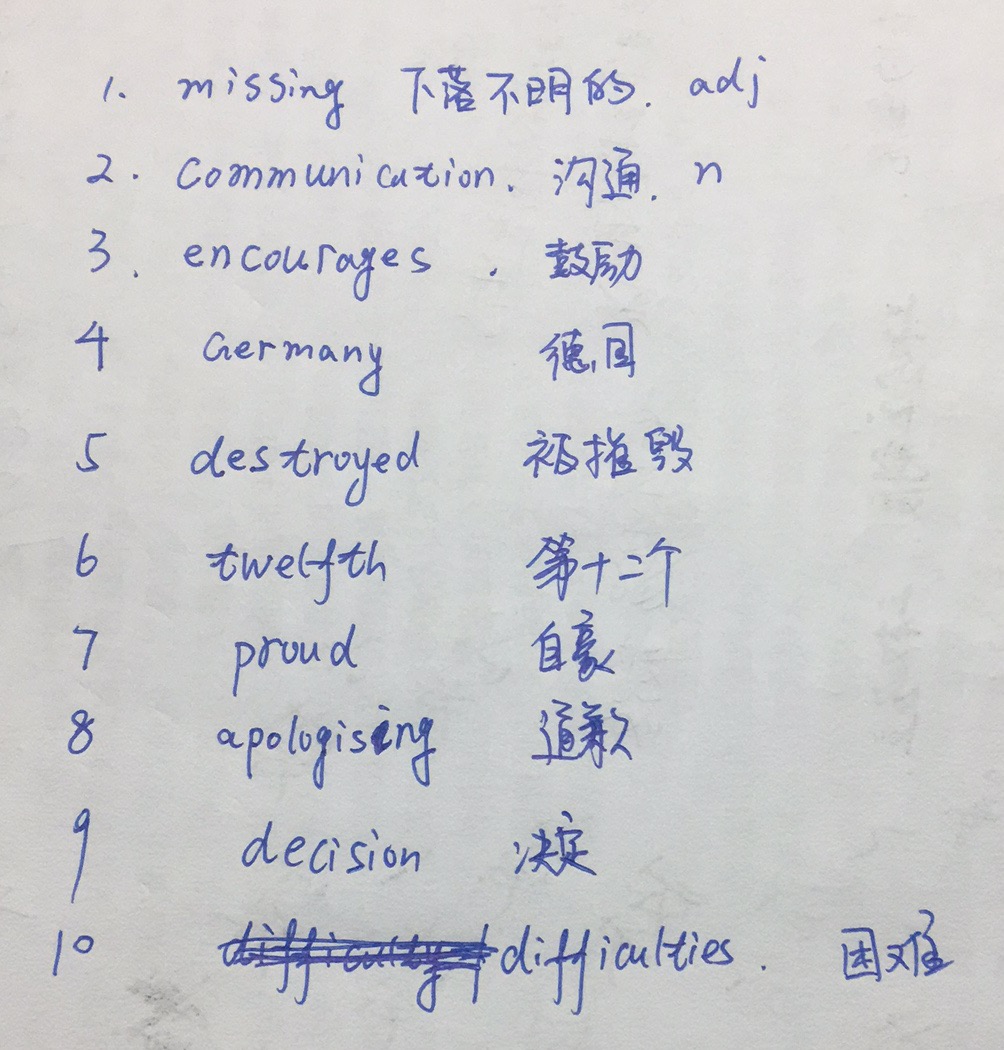 1. missing 下落不明的. adj
2. Communication. 沟通. n
3. encourages . 鼓励
4 Germany 德国
5 destroyed 被摧毁
6 twelfth 第十二个
7 proud 自豪
8 apologising 道歉
9 decision 决定
10 difficulty difficulties. 困难